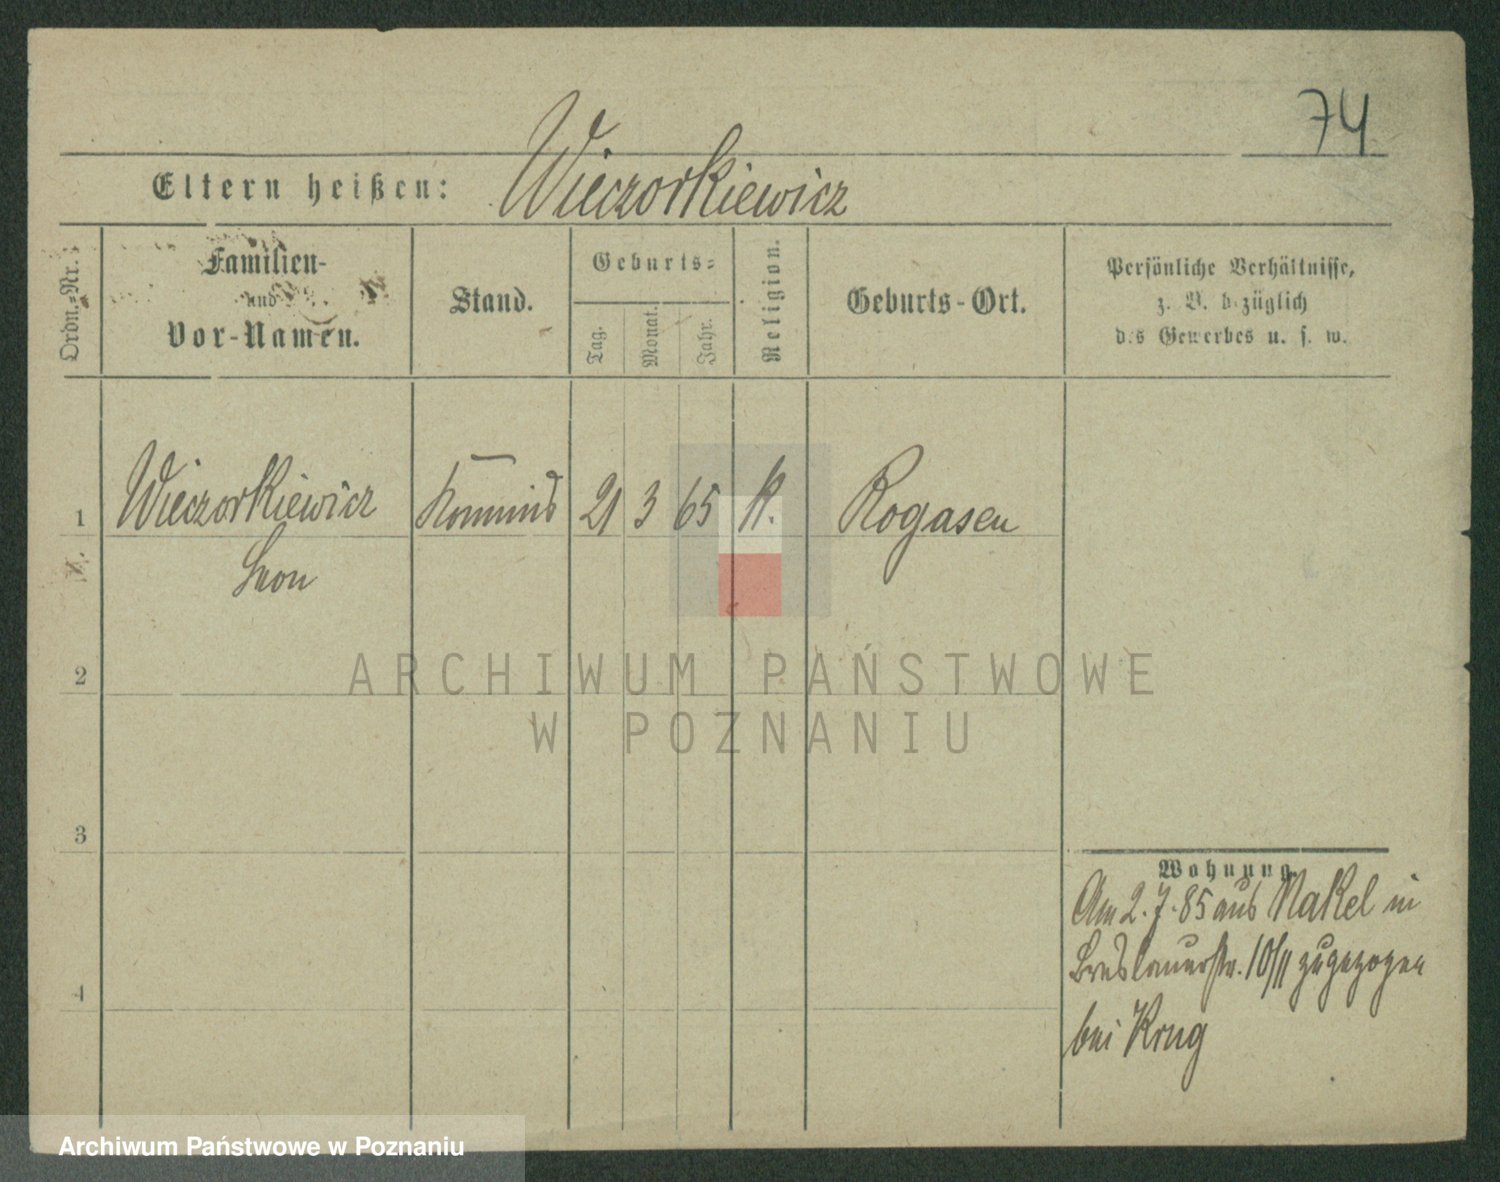 74
Eltern heißen: Wieczorkiewicz
Ordn.-Nr.
Familien-
und
Vor-Namen.
Stand.
Geburts-
Tag.
Monat.
Jahr.
Religion.
Geburts-Ort.
Persönliche Verhältnisse,
z. B. bezüglich
des Gewerbes u. s. w.
1 Wieczorkiewicz Kommis 21 3 65 k. Rogasen
Leon
2
3
4
Wohnung.
Am 2.7.85 aus Nakel in
Breslauerstr. 10/II zugezogen
bei Krug
ARCHIWUM PAŃSTWOWE
W POZNANIU
Archiwum Państwowe w Poznaniu